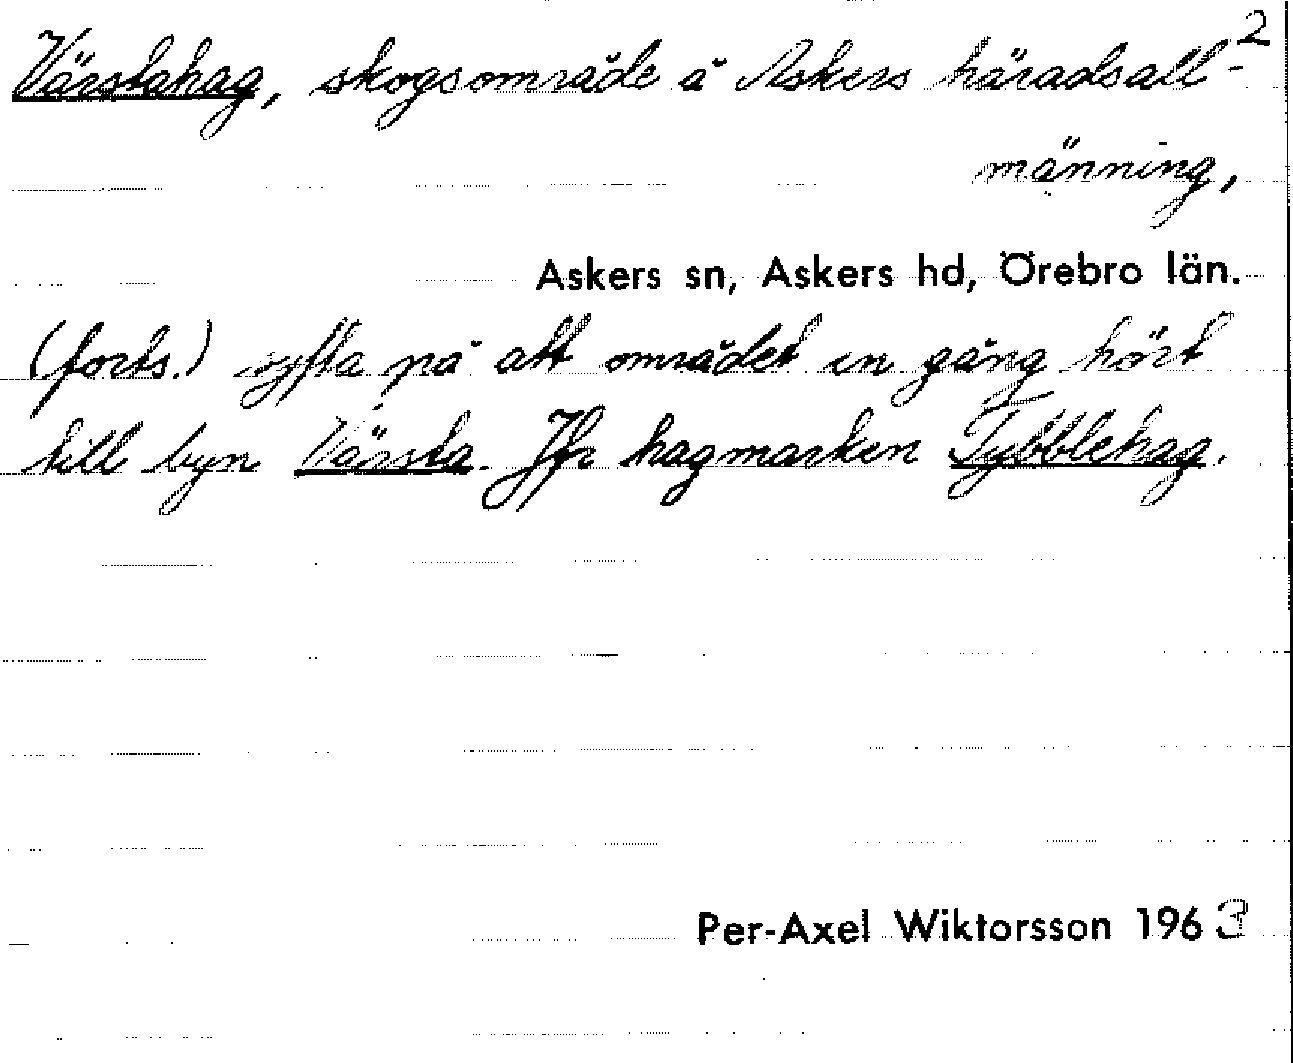 2
Värstahag, skogsområde å Askers häradsall-
männing,
Askers sn, Askers hd, Örebro län.
(forts.) syfta på att området en gång hört
till byn Värsta. Jfr hagmarken Tybblehag.
Per-Axel Wiktorsson 1963